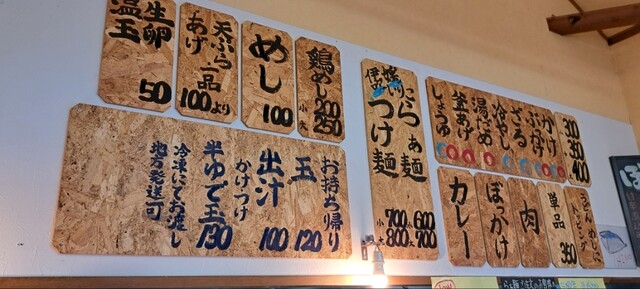 生卵
温玉
50
天ぷら
あげ
一品
100より
めし
100
鶏めし
小 200
大 250
らぁ麺
つけ麺
600
700
小 700
大 800
かけ
ぶっかけ
ざる
冷やし
湯だめ
釜あげ
しょうゆ
300
350
400
お持ち帰り
玉
120
出汁
かけ
つけ
100
半ゆで玉
130
冷凍にてお渡し
地方発送可
カレー
ぼっかけ
肉
単品
350
うどん、めしに
トッピング